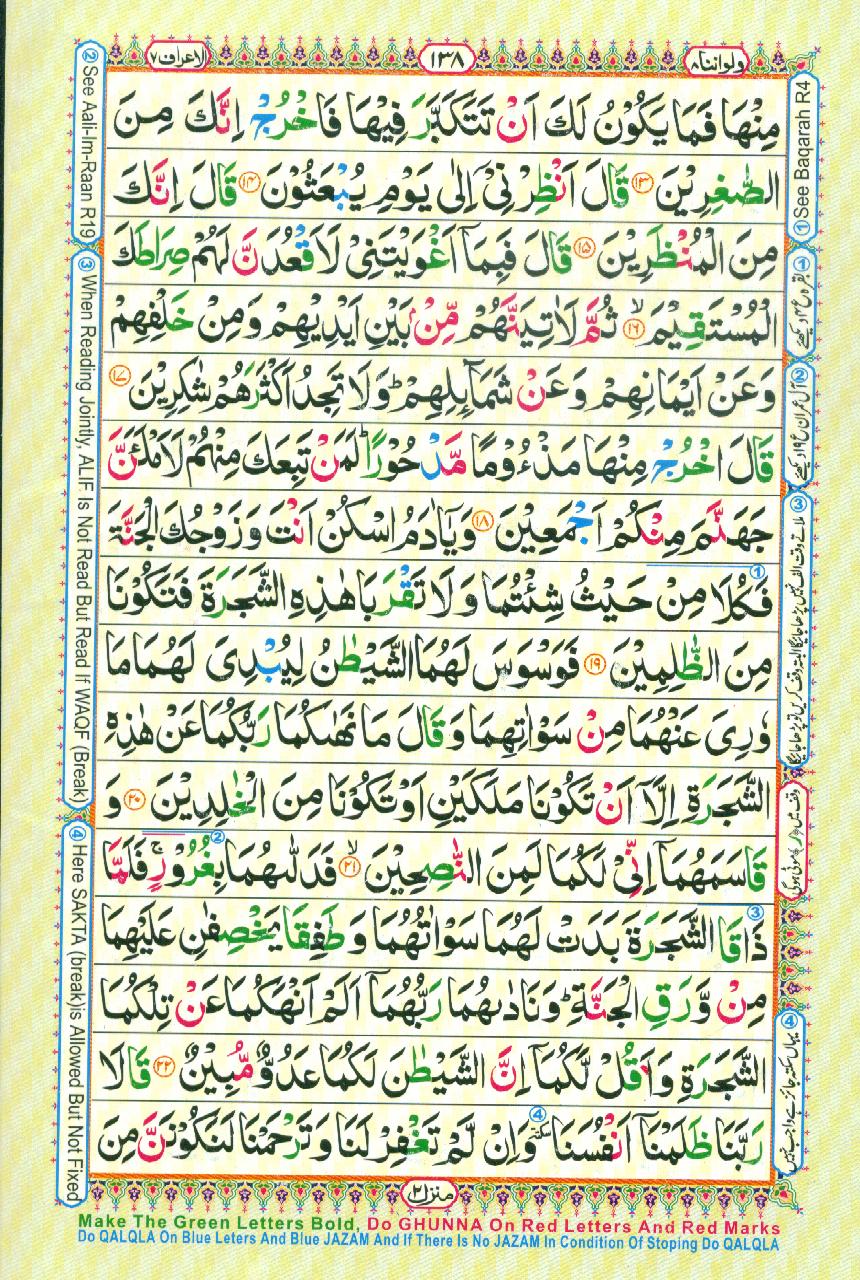 ولواننا ۸
۱۳۸
الاعراف ۷
مِنْهَا فَمَا يَكُوْنُ لَكَ اَنْ تَتَكَبَّرَ فِيْهَا فَاخْرُجْ اِنَّكَ مِنَ
الصّٰغِرِيْنَ ۱۳ قَالَ اَنْظِرْنِيْۤ اِلٰى يَوْمِ يُبْعَثُوْنَ ۱۴ قَالَ اِنَّكَ
مِنَ الْمُنْظَرِيْنَ ۱۵ قَالَ فَبِمَاۤ اَغْوَيْتَنِيْ لَاَقْعُدَنَّ لَهُمْ صِرَاطَكَ
الْمُسْتَقِيْمَ ۙ ۱۶ ثُمَّ لَاٰتِيَنَّهُمْ مِّنْۢ بَيْنِ اَيْدِيْهِمْ وَمِنْ خَلْفِهِمْ
وَعَنْ اَيْمَانِهِمْ وَعَنْ شَمَآئِلِهِمْ ؕ وَلَا تَجِدُ اَكْثَرَهُمْ شٰكِرِيْنَ ۱۷
قَالَ اخْرُجْ مِنْهَا مَذْءُوْمًا مَّدْحُوْرًا ؕ لَمَنْ تَبِعَكَ مِنْهُمْ لَاَمْلَئَنَّ
جَهَنَّمَ مِنْكُمْ اَجْمَعِيْنَ ۱۸ وَيٰۤاٰدَمُ اسْكُنْ اَنْتَ وَزَوْجُكَ الْجَنَّةَ
فَكُلَا مِنْ حَيْثُ شِئْتُمَا وَلَا تَقْرَبَا هٰذِهِ الشَّجَرَةَ فَتَكُوْنَا ①
مِنَ الظّٰلِمِيْنَ ۱۹ فَوَسْوَسَ لَهُمَا الشَّيْطٰنُ لِيُبْدِيَ لَهُمَا مَا
وٗرِيَ عَنْهُمَا مِنْ سَوْاٰتِهِمَا وَقَالَ مَا نَهٰىكُمَا رَبُّكُمَا عَنْ هٰذِهِ
الشَّجَرَةِ اِلَّاۤ اَنْ تَكُوْنَا مَلَكَيْنِ اَوْ تَكُوْنَا مِنَ الْخٰلِدِيْنَ ۲۰ وَ
قَاسَمَهُمَاۤ اِنِّيْ لَكُمَا لَمِنَ النّٰصِحِيْنَ ۙ ۲۱ فَدَلّٰىهُمَا بِغُرُوْرٍ ② ۚ فَلَمَّا
ذَاقَا الشَّجَرَةَ بَدَتْ لَهُمَا سَوْاٰتُهُمَا وَطَفِقَا يَخْصِفٰنِ عَلَيْهِمَا ③
مِنْ وَّرَقِ الْجَنَّةِ ؕ وَنَادٰىهُمَا رَبُّهُمَاۤ اَلَمْ اَنْهَكُمَا عَنْ تِلْكُمَا
الشَّجَرَةِ وَاَقُلْ لَّكُمَاۤ اِنَّ الشَّيْطٰنَ لَكُمَا عَدُوٌّ مُّبِيْنٌ ۲۲ قَالَا
رَبَّنَا ظَلَمْنَاۤ اَنْفُسَنَا ④ سكتة وَاِنْ لَّمْ تَغْفِرْ لَنَا وَتَرْحَمْنَا لَنَكُوْنَنَّ مِنَ
منزل ۲
① See Baqarah R4
① بقرہ ع ۴ دیکھئے
② آل عمران ع ۱۹ دیکھئے
③ ملاتے وقت الف نہیں پڑھا جائیگا البتہ وقف کریں تو پڑھا جائیگا
④ یہاں سکتہ جائز ہے واجب نہیں
② See Aali-Im-Raan R19
③ When Reading Jointly, ALIF Is Not Read But Read If WAQF (Break)
④ Here SAKTA (break)is Allowed But Not Fixed
Make The Green Letters Bold, Do GHUNNA On Red Letters And Red Marks
Do QALQLA On Blue Leters And Blue JAZAM And If There Is No JAZAM In Condition Of Stoping Do QALQLA